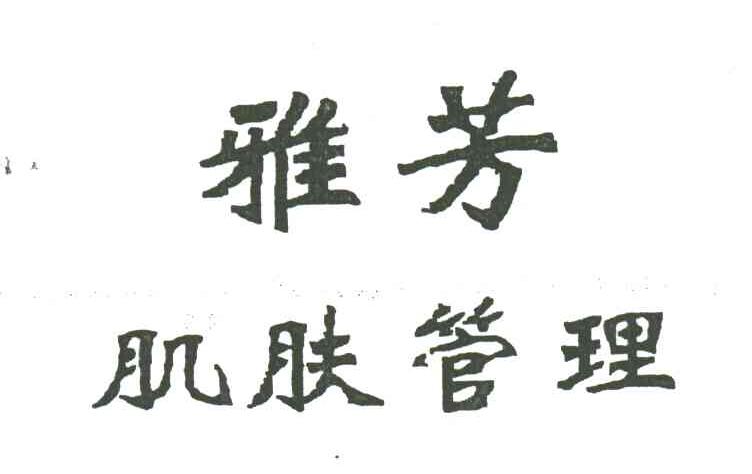 雅芳
肌肤管理